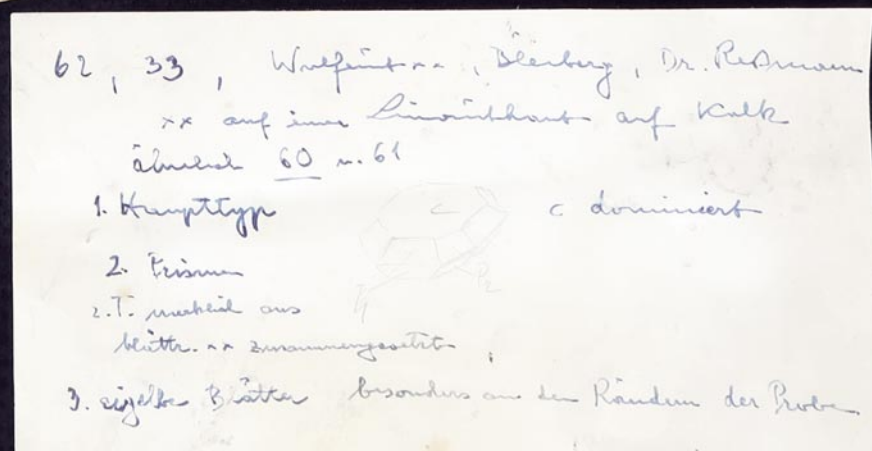 62, 33, Wulfenit xx, Bleiberg, Dr. Reßmann
xx auf einer Limonithaut auf Kalk
ähnlich 60 u. 61
1. Haupttyp c dominiert
c
2. Prismen
z.T. merklich aus
blättr. xx zusammengesetzt
3. eigelbe Blätter besonders an den Rändern der Probe